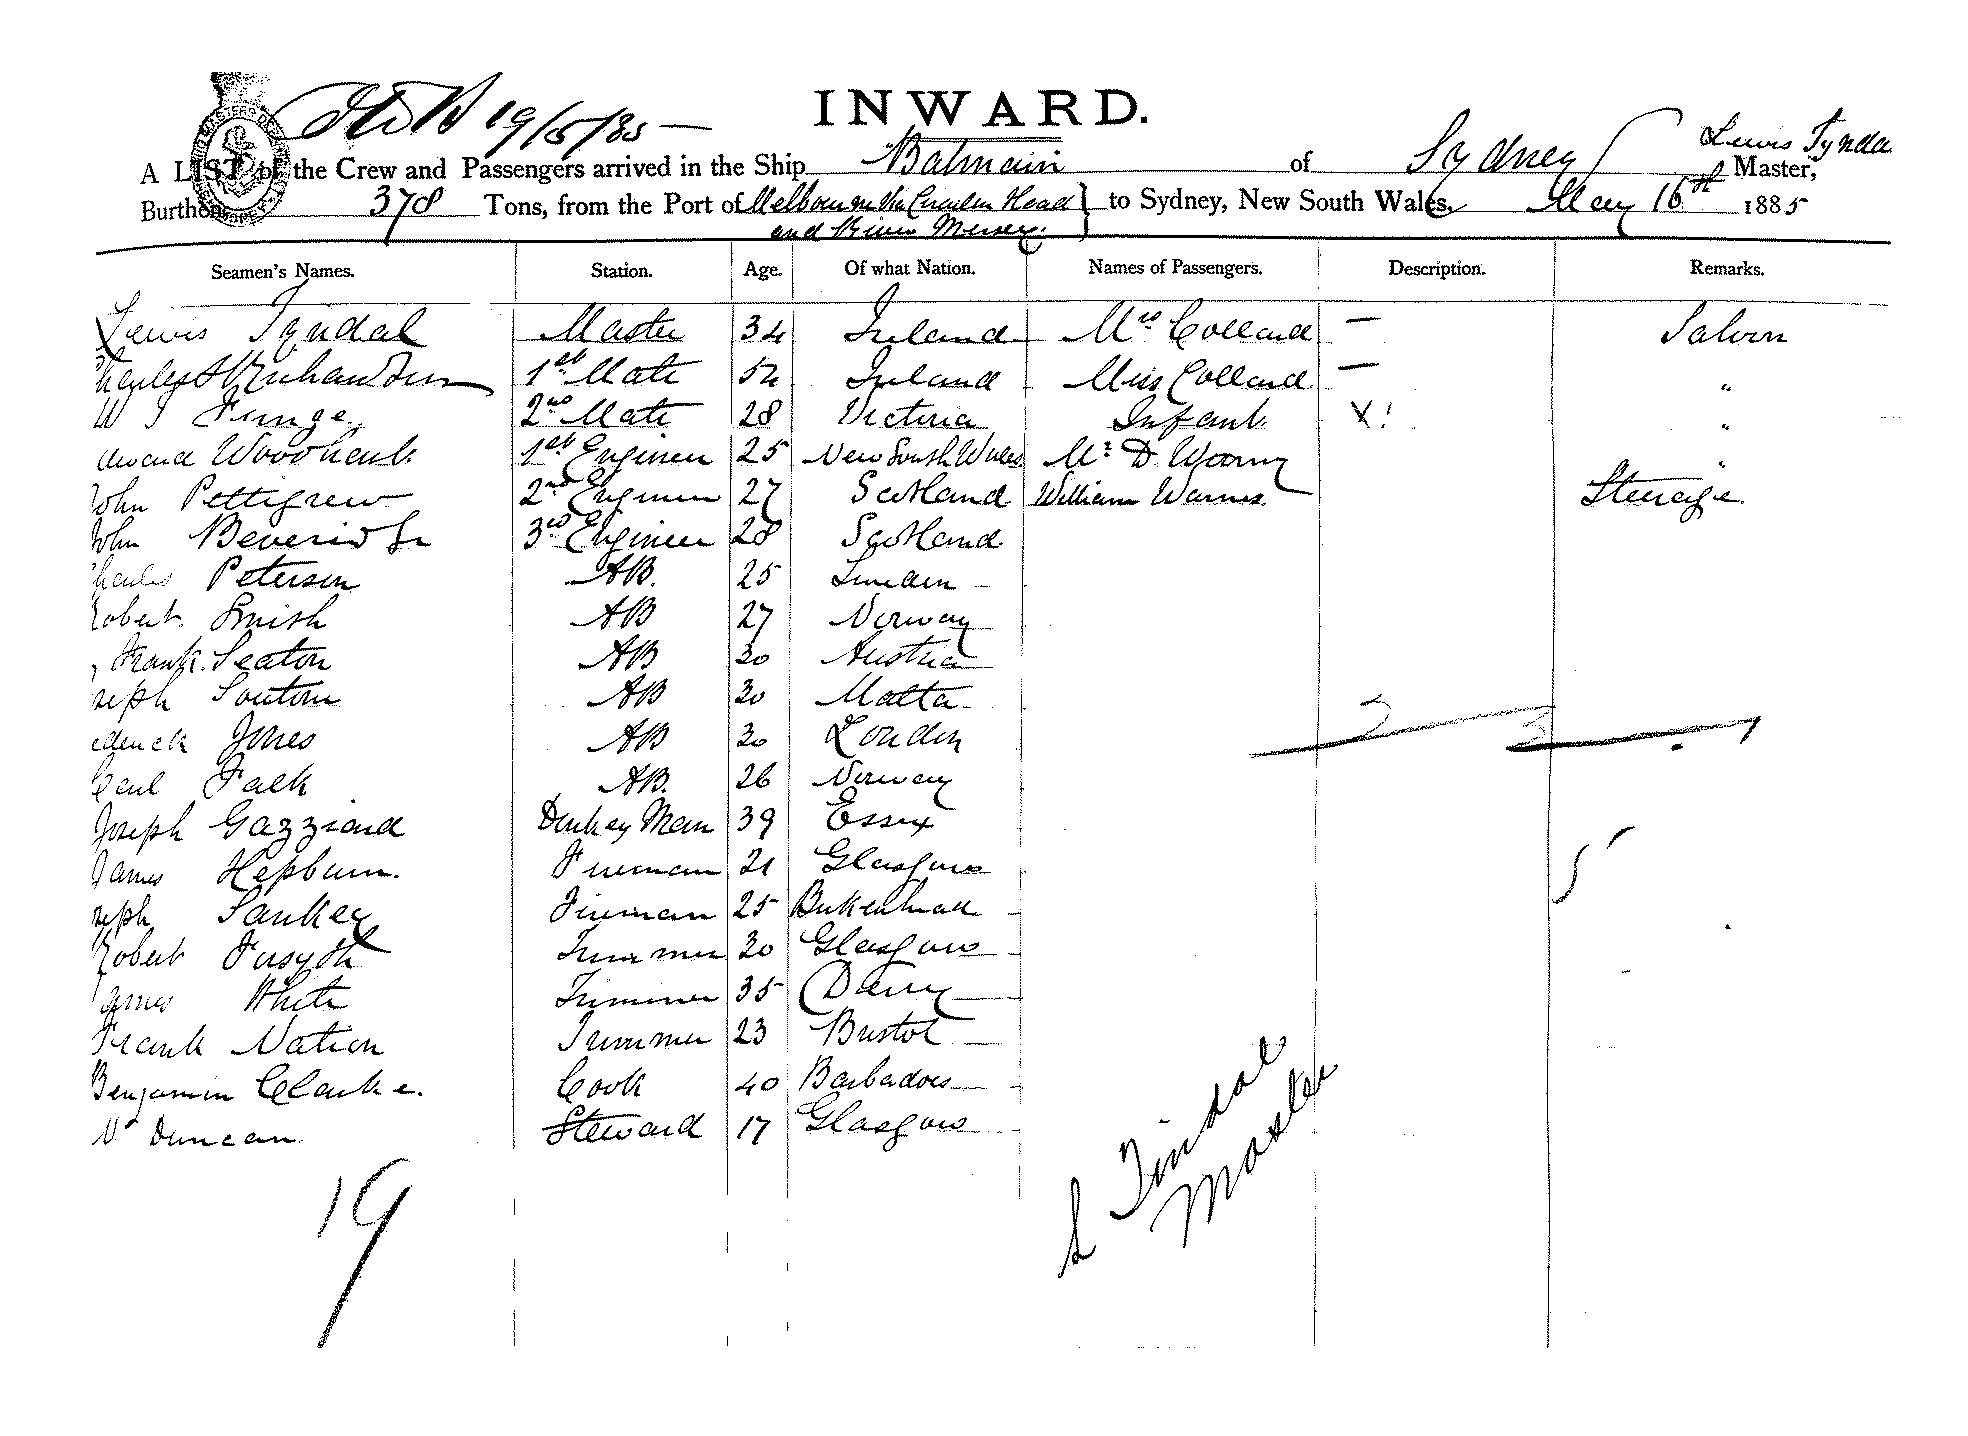 19/5/85
INWARD.
A LIST of the Crew and Passengers arrived in the Ship Balmain of Sydney Lewis Tynda Master,
Burthen 378 Tons, from the Port of Melbourne via Circular Head to Sydney, New South Wales, May 16th 1885
and River Mersey.
Seamen's Names. Station. Age. Of what Nation. Names of Passengers. Description. Remarks.
Lewis Tyndal Master 34 Ireland Mrs Colland — Saloon
1st Mate 54 Ireland Miss Colland — "
W J 2nd Mate 28 Victoria Infant X! "
Woodhead 1st Engineer 25 New South Wales Mr D "
John Pettigrew 2nd Engineer 27 Scotland William Warnes Steerage
John Beveridge 3rd Engineer 28 Scotland
Charles Peterson AB. 25 Sweden
Robert Smith AB 27 Norway
Frank Seaton AB 30 Austria
seph AB 30 Malta
ederick Jones AB 30 London
Carl Falk AB. 26 Norway
Joseph Gazziard Donkey Man 39 Essex
James Hepburn. Fireman 21 Glasgow
seph Sankey Fireman 25 Birkenhead
Robert Forsyth Trimmer 30 Glasgow
James White Trimmer 35 Derry
Frank Nation Trimmer 23 Bristol
Benjamin Clarke. Cook 40 Barbadoes
Wm Duncan Steward 17 Glasgow
2 3
5
19
L Tindal
Master